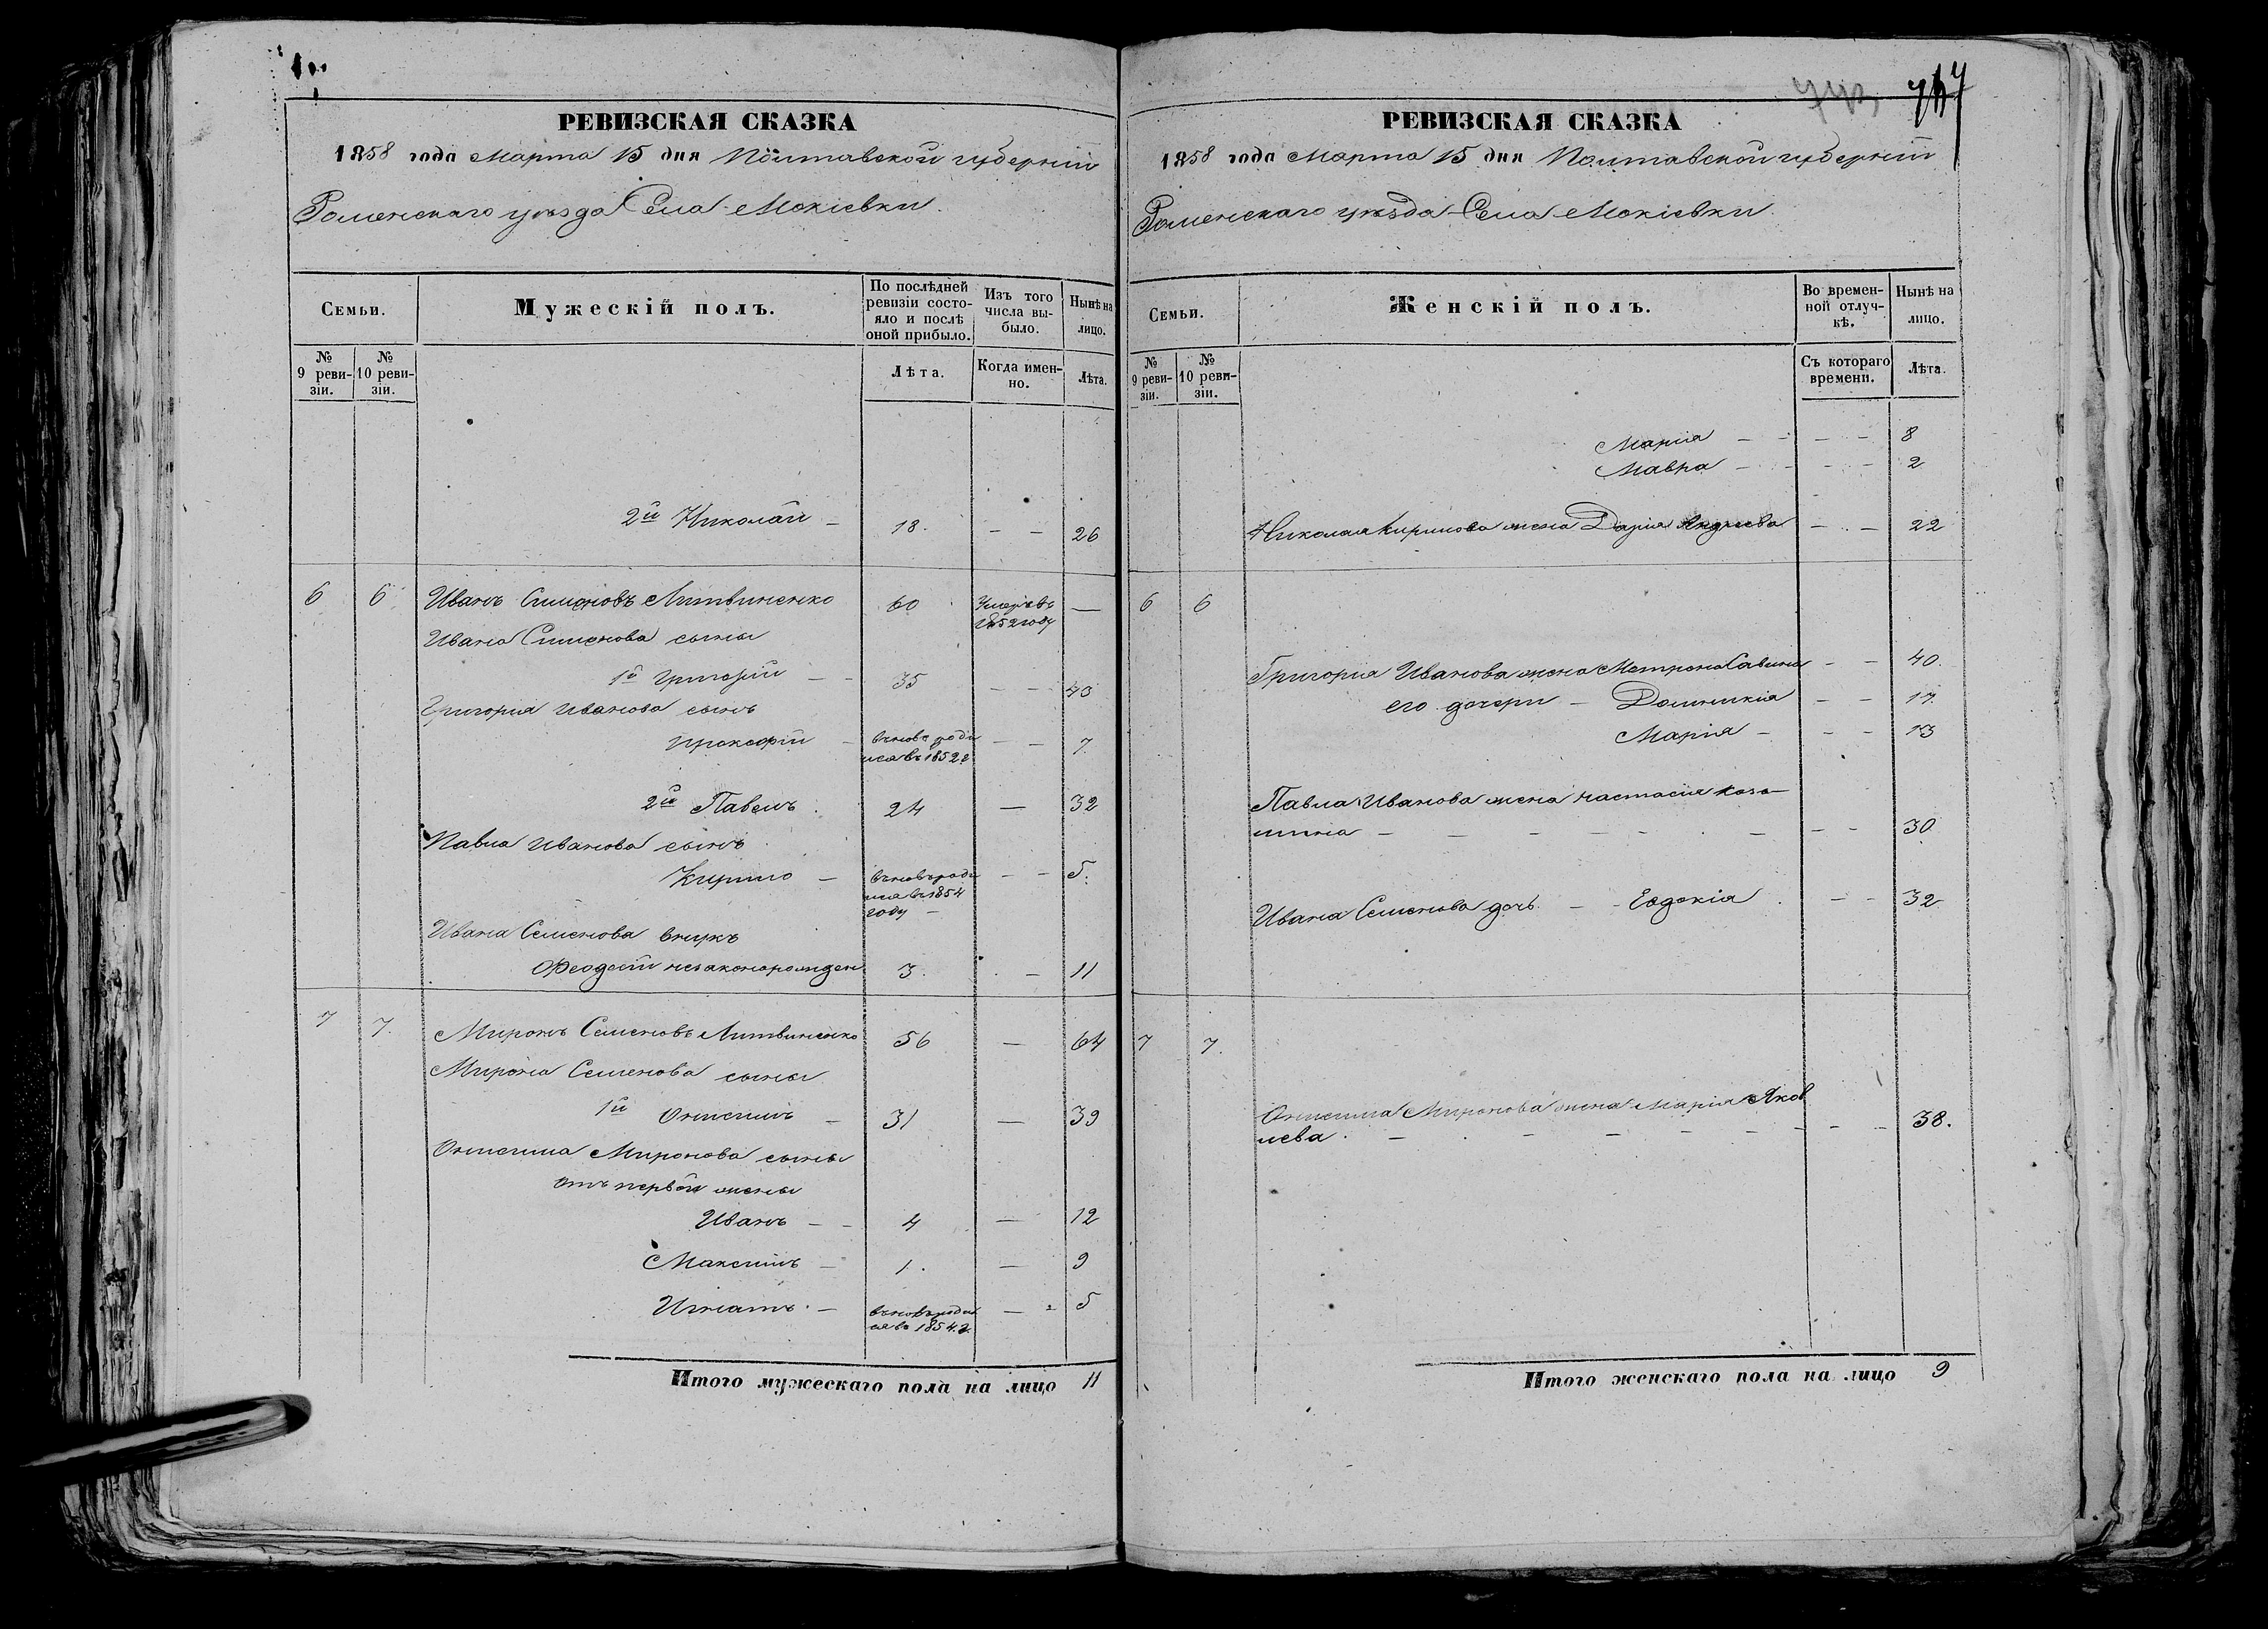 РЕВИЗСКАЯ СКАЗКА
1858 года Марта 15 дня Полтавской губерніи
Роменскаго уѣзда Села Мокіевки.
Семьи.
Мужескій полъ.
По послѣдней ревизіи состояло и послѣ оной прибыло.
Изъ того числа выбыло.
Нынѣ на лицо.
№ 9 ревизіи.
№ 10 ревизіи.
Лѣта.
Когда именно.
Лѣта.
2й Николай — 18. — — 26
6 6 Иванъ Симоновъ Литвиненко 60 Умеръ въ 1852 году —
Ивана Симонова сыны
1й Григорій — — 35 — — 43
Григорія Иванова сынъ
Прокофій — вновь родился въ 1852 г — — 7
2й Павелъ . 24 — 32
Павла Иванова сынъ
Кирило — вновь родился въ 1854 году — — — 5.
Ивана Семенова внукъ
Феодосій незаконорожден 3. — 11
7 7. Миронъ Семеновъ Литвиненко 56 — 64
Мирона Семенова сыны
1й Онисимъ — 31 — 39
Онисима Миронова сыны
отъ первой жены
Иванъ — — 4 — 12
Максимъ — 1. — 9
Игнатъ. — вновь родился въ 1854. г. — 5
Итого мужескаго пола на лицо 11
РЕВИЗСКАЯ СКАЗКА
1858 года Марта 15 дня Полтавской губерніи
Роменскаго уѣзда Села Мокіевки.
Семьи.
Женскій полъ.
Во временной отлучкѣ.
Нынѣ на лицо.
№ 9 ревизіи.
№ 10 ревизіи.
Съ котораго времени.
Лѣта.
Марія — — — — 8
Мавра — — — — 2
Николая Кирилова жена Дарія Андреева — — 22
6 6
Григорія Иванова жена Матрона Савина — — 40.
его дочери — Домникія — — 17.
Марія — — — 13
Павла Иванова жена Настасія
— — — — — — — — 30.
Ивана Семенова дочь — — Евдокія . — — 32
7 7.
Онисима Миронова жена Марія Яков
лева . — . — — — — — — 38.
Итого женскаго пола на лицо 9